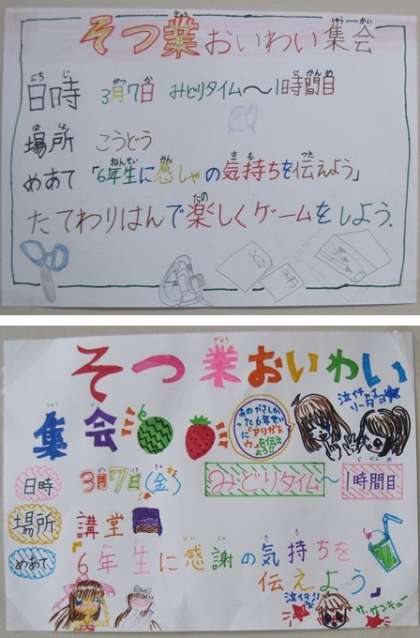 そつ業おいわい集会
日時 3月7日 みどりタイム〜1時間目
場所 こうどう
めあて「6年生に感しゃの気持ちを伝えよう」
たてわりはんで楽しくゲームをしよう.
そつ業おいわい
集会
あのやさしかった6年せいに「アリガトウ」を伝えよう!!
日時 3月7日(金) みどりタイム〜1時間目
場所 講堂
めあて 「6年生に感謝の気持ちを
伝えよう」